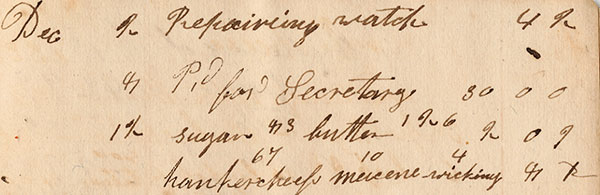 Dec 2 Repairing watch 4 2
4 Pd for Secretary 30 0 0
12 sugar 4/3 butter 1 2 6 2 0 9
67 10 4
hankercheef wicking 4